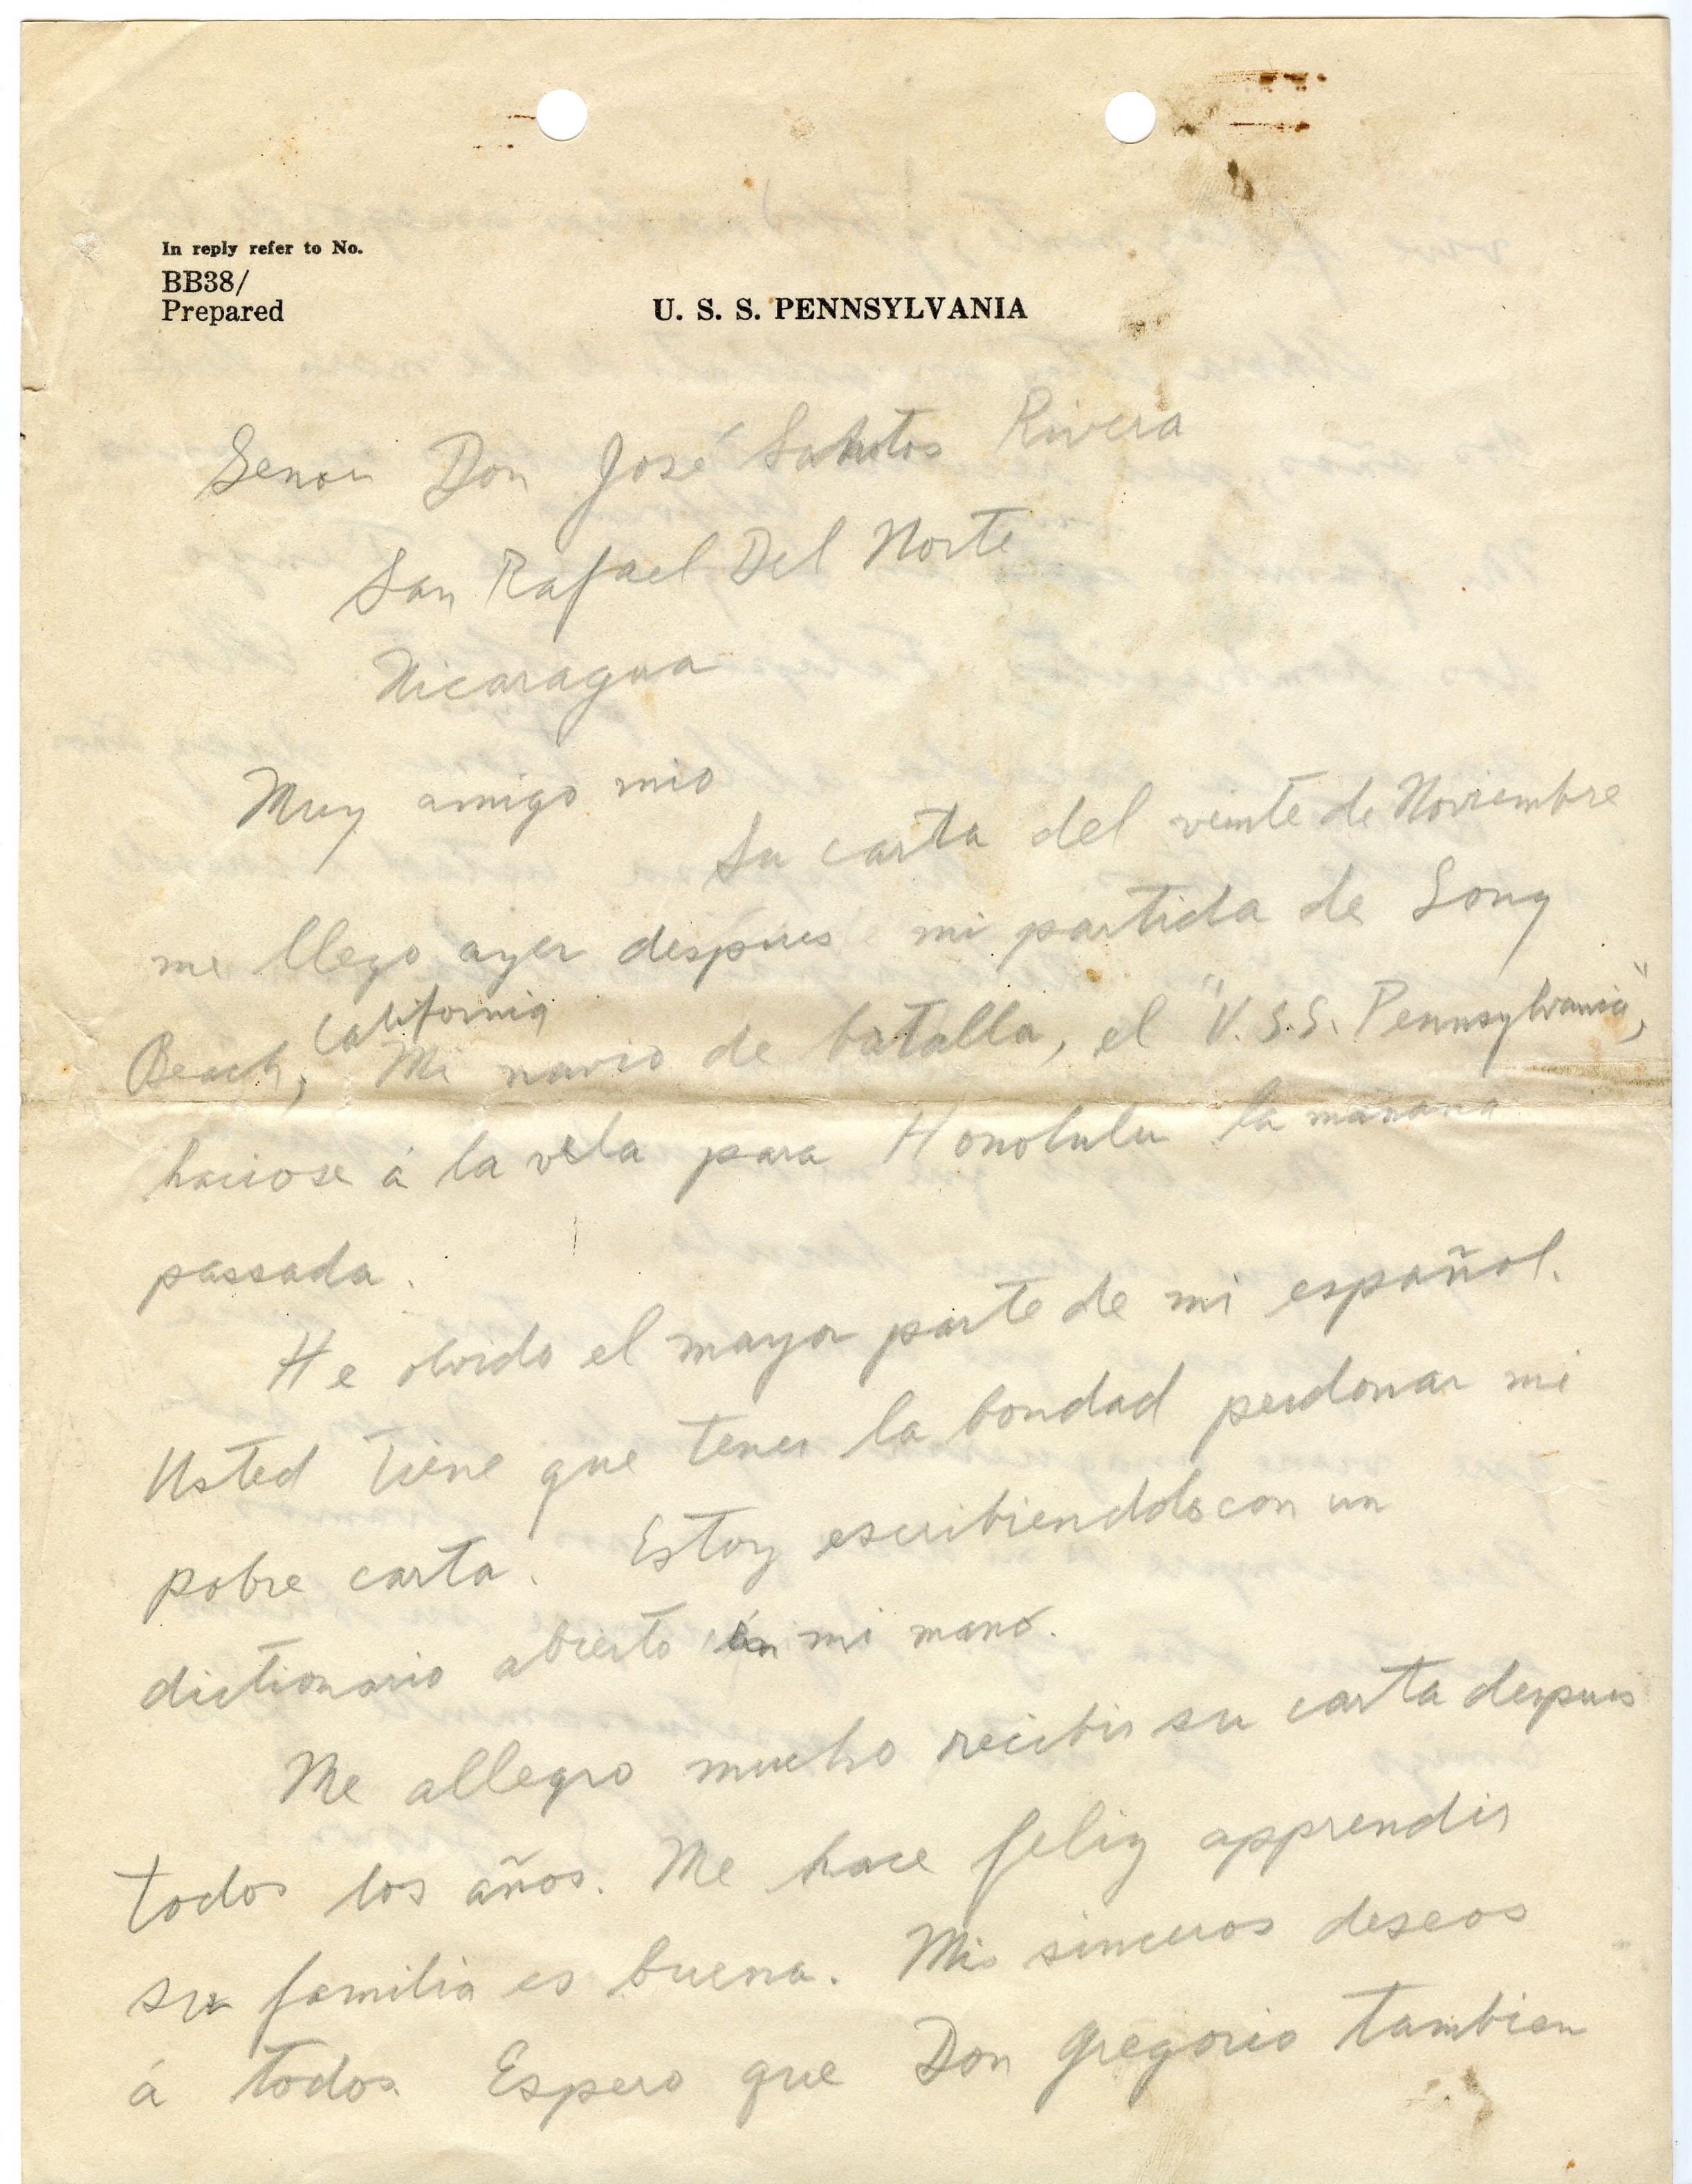 In reply refer to No.
BB38/
Prepared
U. S. S. PENNSYLVANIA
Senor Don José Santos Rivera
San Rafael Del Norte
Nicaragua
Muy amigo mio
Su carta del veinte de Noviembre
me llego ayer despues mi partida de Long
Beach, California Mi navio de batalla, el "U.S.S. Pennsylvania",
haciose á la vela para Honolulu la mañana
passada.
He olvido el mayor parte de mi español.
Usted tiene que tener la bondad perdonar mi
pobre carta. Estoy escribiendolo con un
dictionario abierto en mi mano.
Me allegro mucho recibir su carta despues
todos los años. Me hace feliz apprendir
su familia es buena. Mis sinceros deseos
á todos. Espero que Don Gregorio tambien